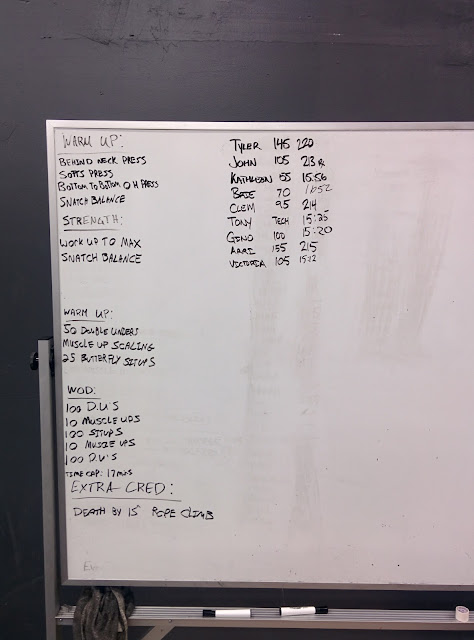 WARM UP:
BEHIND NECK PRESS
SOTTS PRESS
BOTTOM TO BOTTOM O H PRESS
SNATCH BALANCE
STRENGTH:
WORK UP TO MAX
SNATCH BALANCE
WARM UP:
50 DOUBLE UNDERS
MUSCLE UP SCALING
25 BUTTERFLY SITUPS
WOD:
100 D.U'S
10 MUSCLE UPS
100 SITUPS
10 MUSCLE UPS
100 D.U'S
TIME CAP: 17 MINS
EXTRA CRED:
DEATH BY 15' ROPE CLIMB
TYLER 145 220
JOHN 105 213
KATHLEEN 55 15:56
70
CLEM 95 214
TONY TECH 15:35
GINO 100 15:20
155 215
VICTORIA 105 15:12